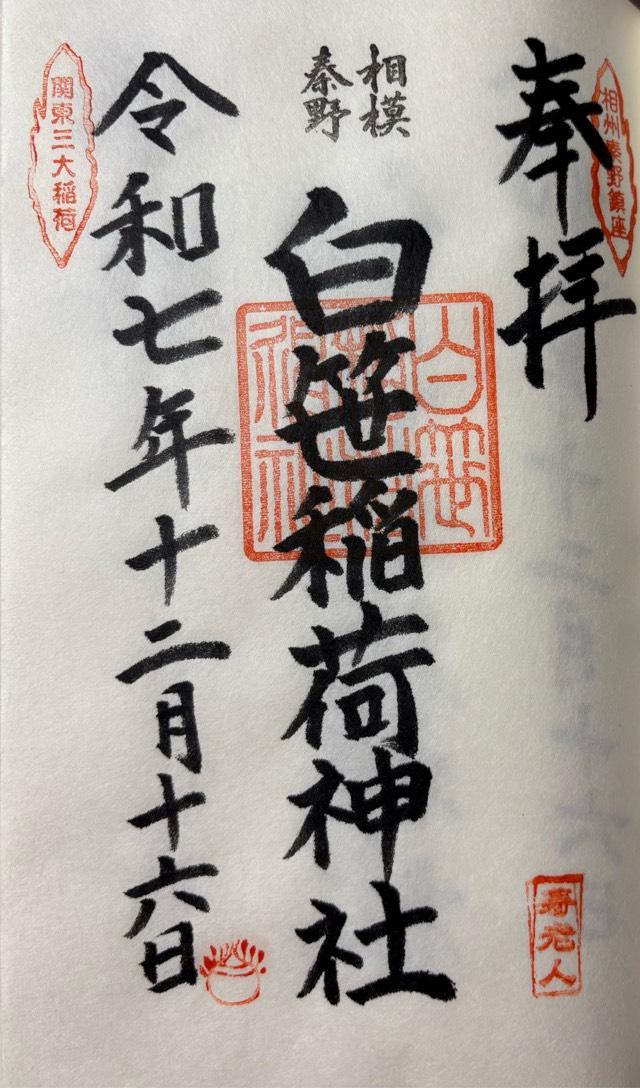 相州秦野鎮座
奉拝
寿老人
相模
秦野
白笹稲荷神社
令和七年十二月十六日
関東三大稲荷